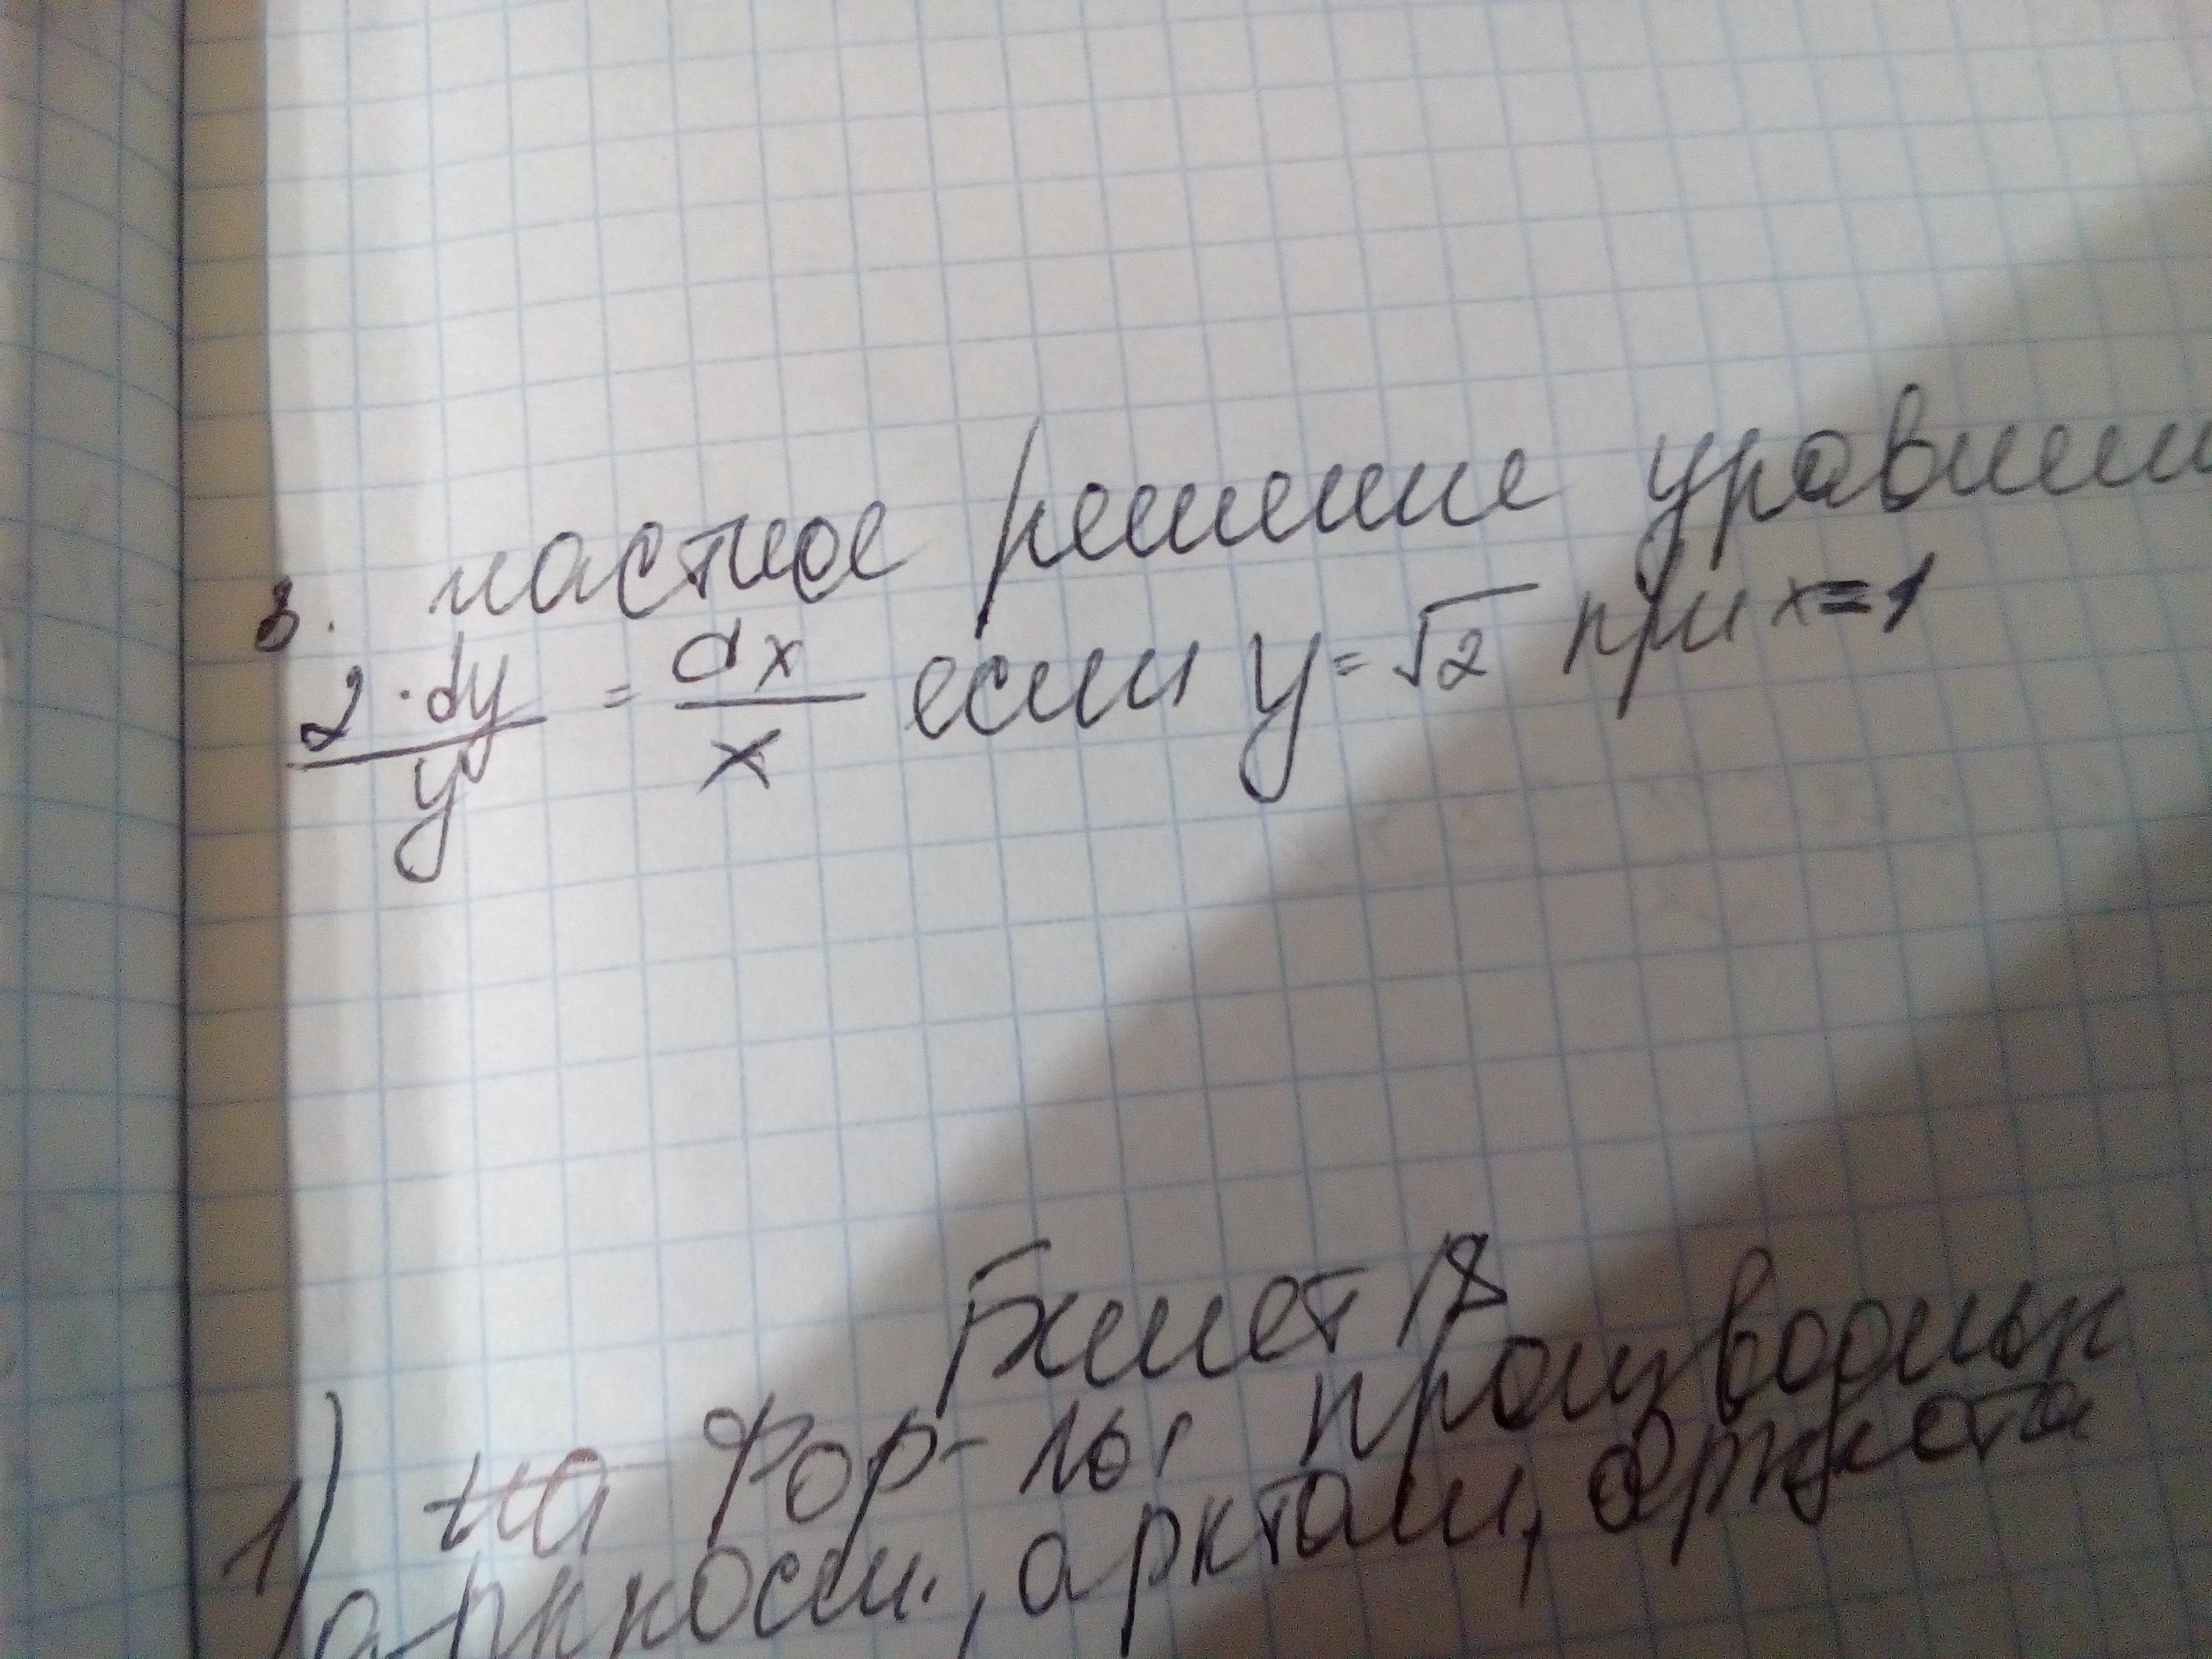 3. частное решение уравнени
2·dy/y = dx/x если y=√2 при x=1
Билет 18
1) на Фор-лы производных
арккосин., арктан, арккота